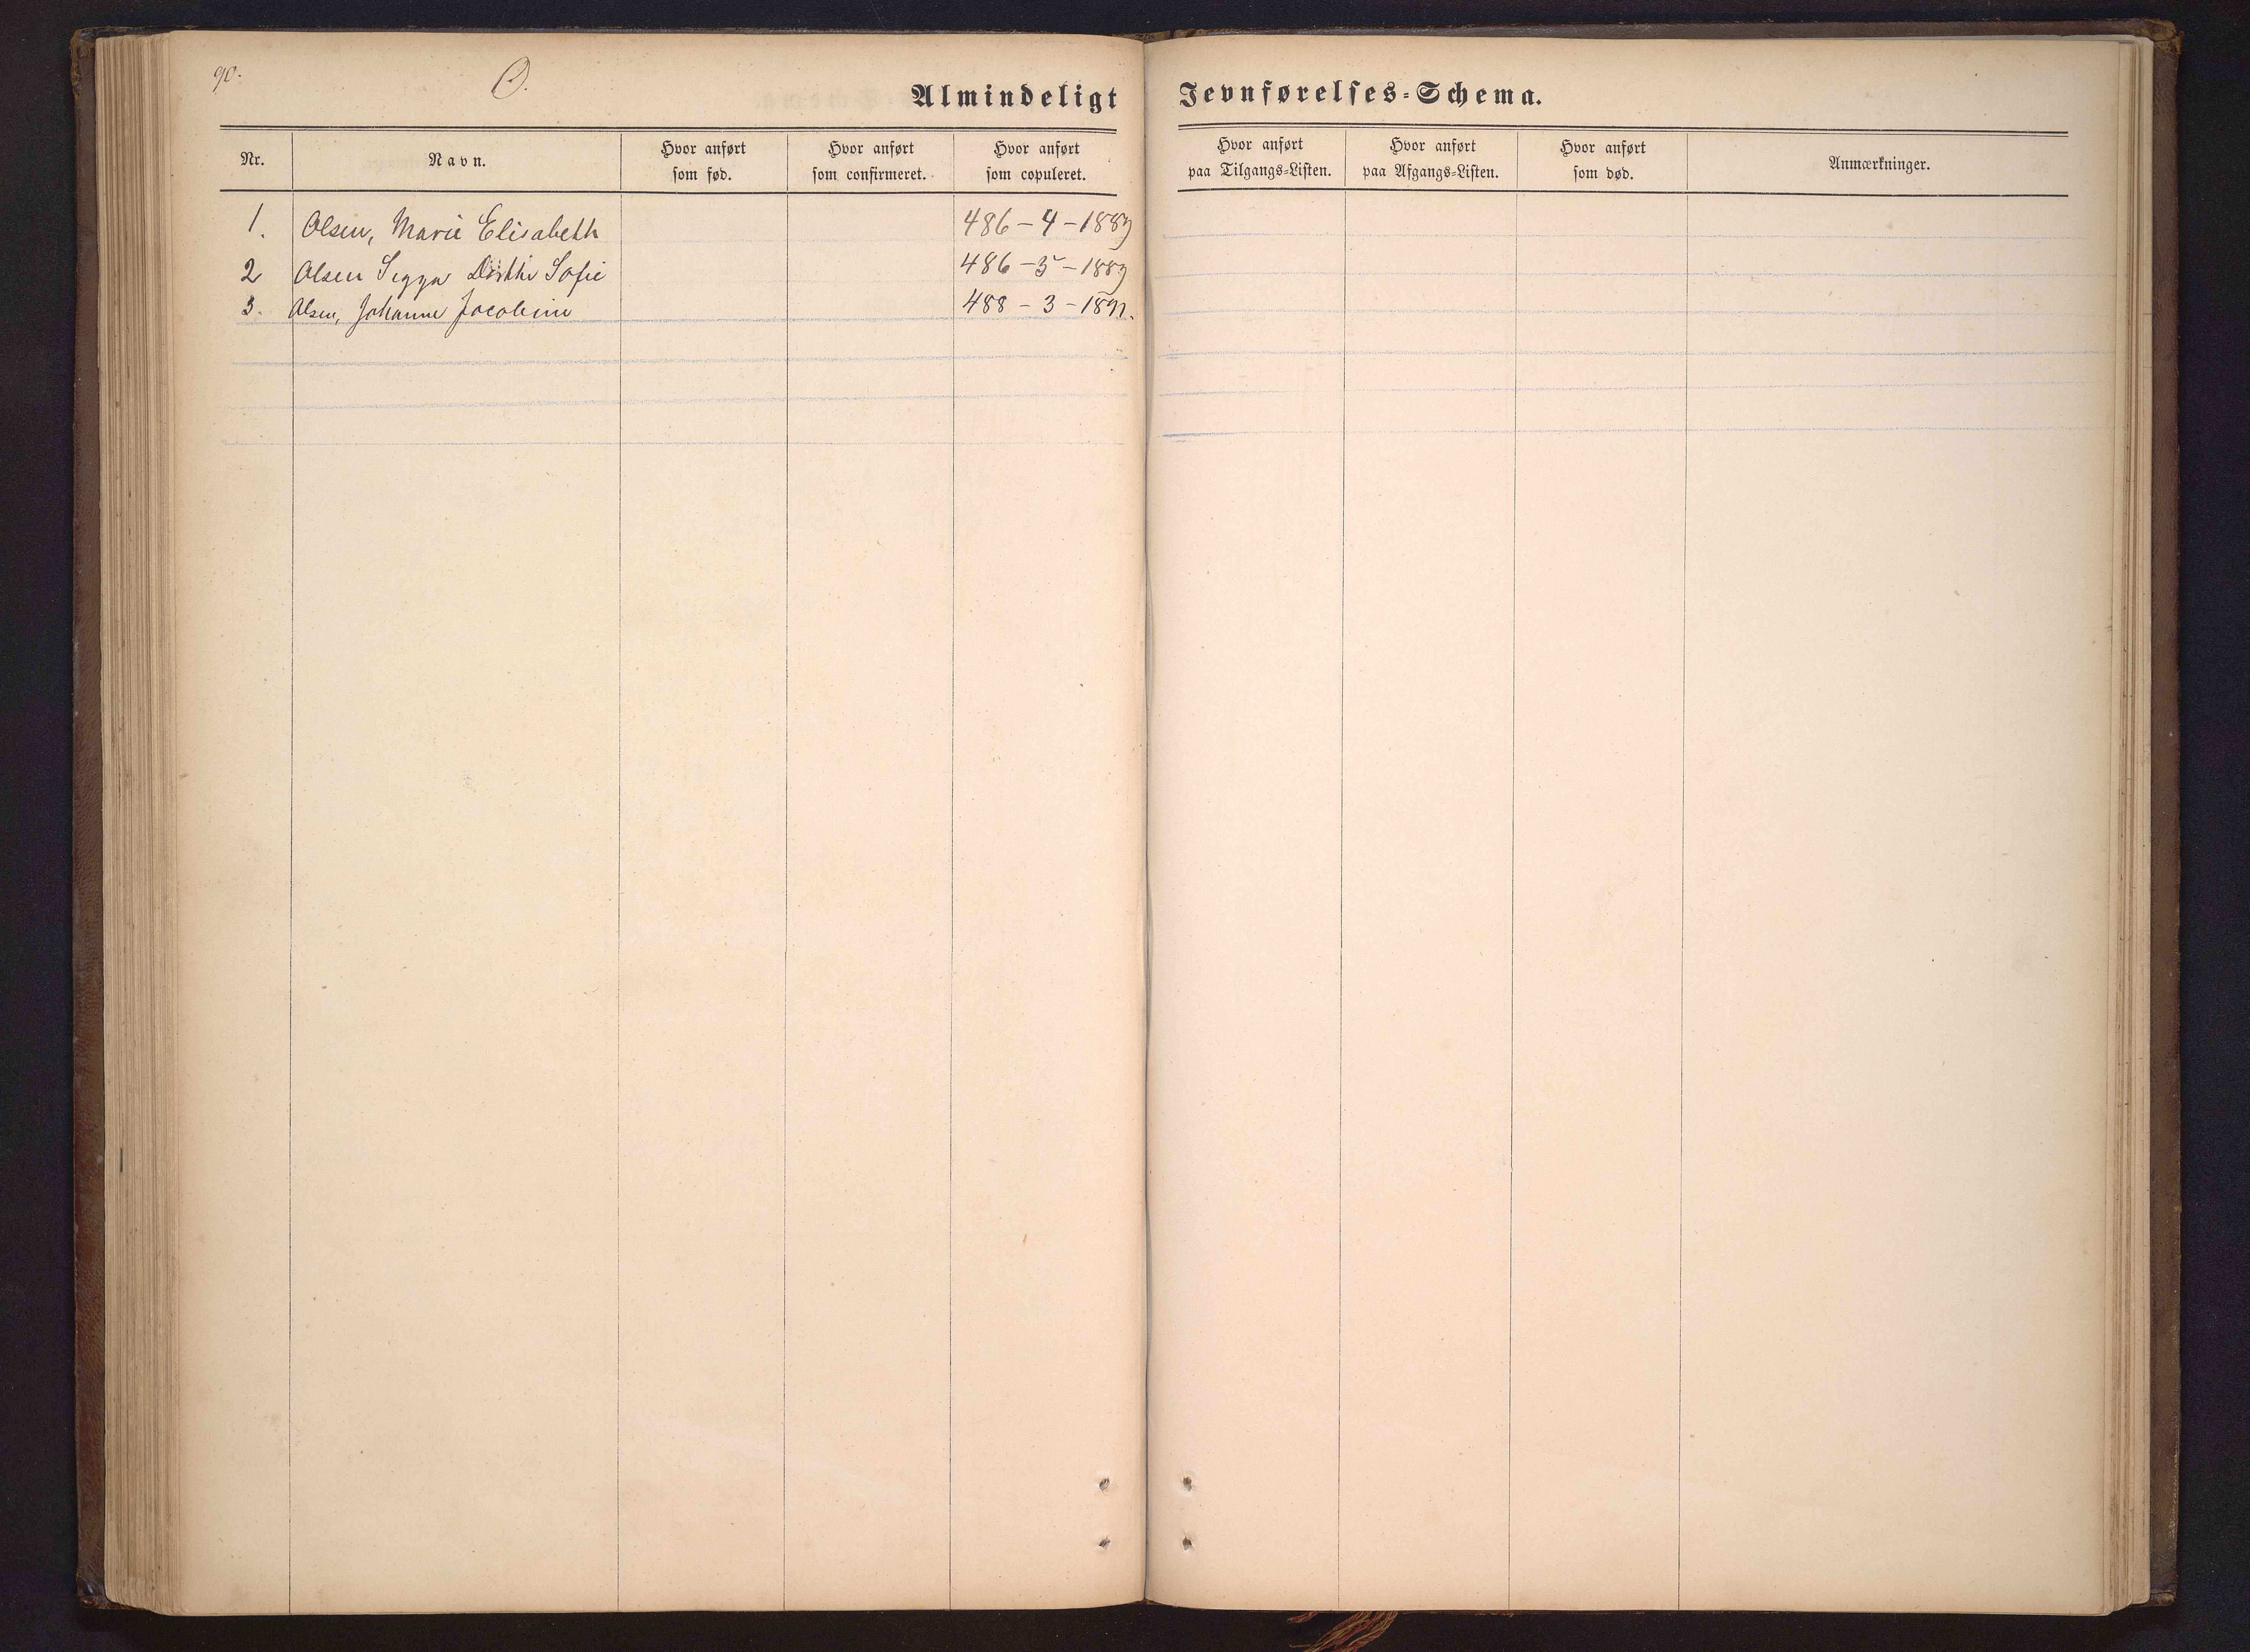 90.
O.
Almindeligt Jevnførelses-Schema.
Nr. Navn. Hvor anført som fød. Hvor anført som confirmeret. Hvor anført som copuleret. Hvor anført paa Tilgangs-Listen. Hvor anført paa Afgangs-Listen. Hvor anført som død. Anmærkninger.
1. Olsen, Marie Elisabeth 486-4-1889
2 Olsen Dorthe Sofie 486-5-1889
3. Olsen, Johanne Jacobine 488-3-1891.